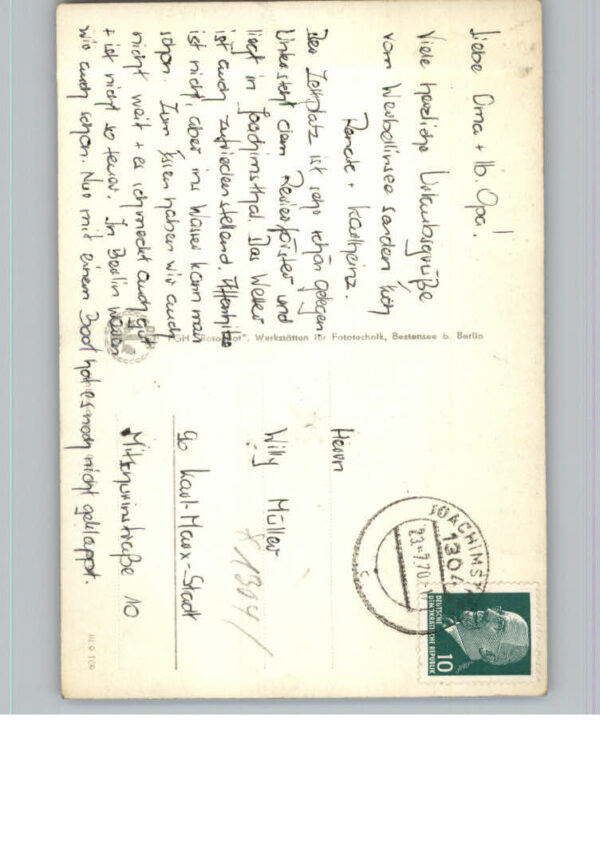 Liebe Oma + lb. Opa!
Viele herzliche Urlaubsgrüße
vom Werbellinsee senden Euch
Renate + Karlheinz.
Der Zeltplatz ist sehr schön gelegen.
Untersteht dem Revierförster und
liegt in Joachimsthal. Das Wetter
ist auch zufriedenstellend. Affenhitze
ist nicht, aber ins Wasser kann man
schon. Zum Essen haben wir auch
nicht weit + es schmeckt auch gut
+ ist nicht so teuer. In Berlin waren
wir auch schon. Nur mit einem Boot hat es noch nicht geklappt.
Werkstätten für Fototechnik, Bestensee b. Berlin
Herrn
Willy Müller
90 Karl-Marx-Stadt
Mitschurinstraße 10
1304
JOACHIMST
1304
DEUTSCHE
DEMOKRATISCHE REPUBLIK
10